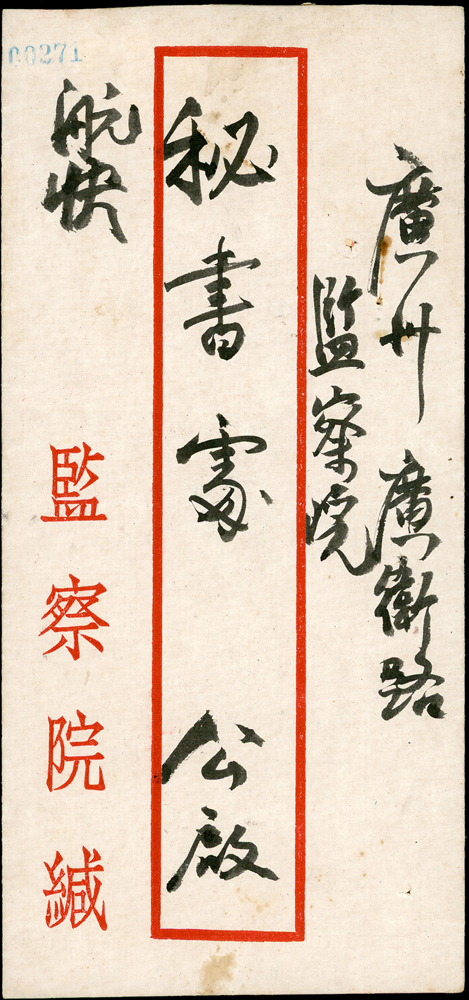 廣州廣衛路
監察院
秘書處 公啟
航快
監察院緘
00271